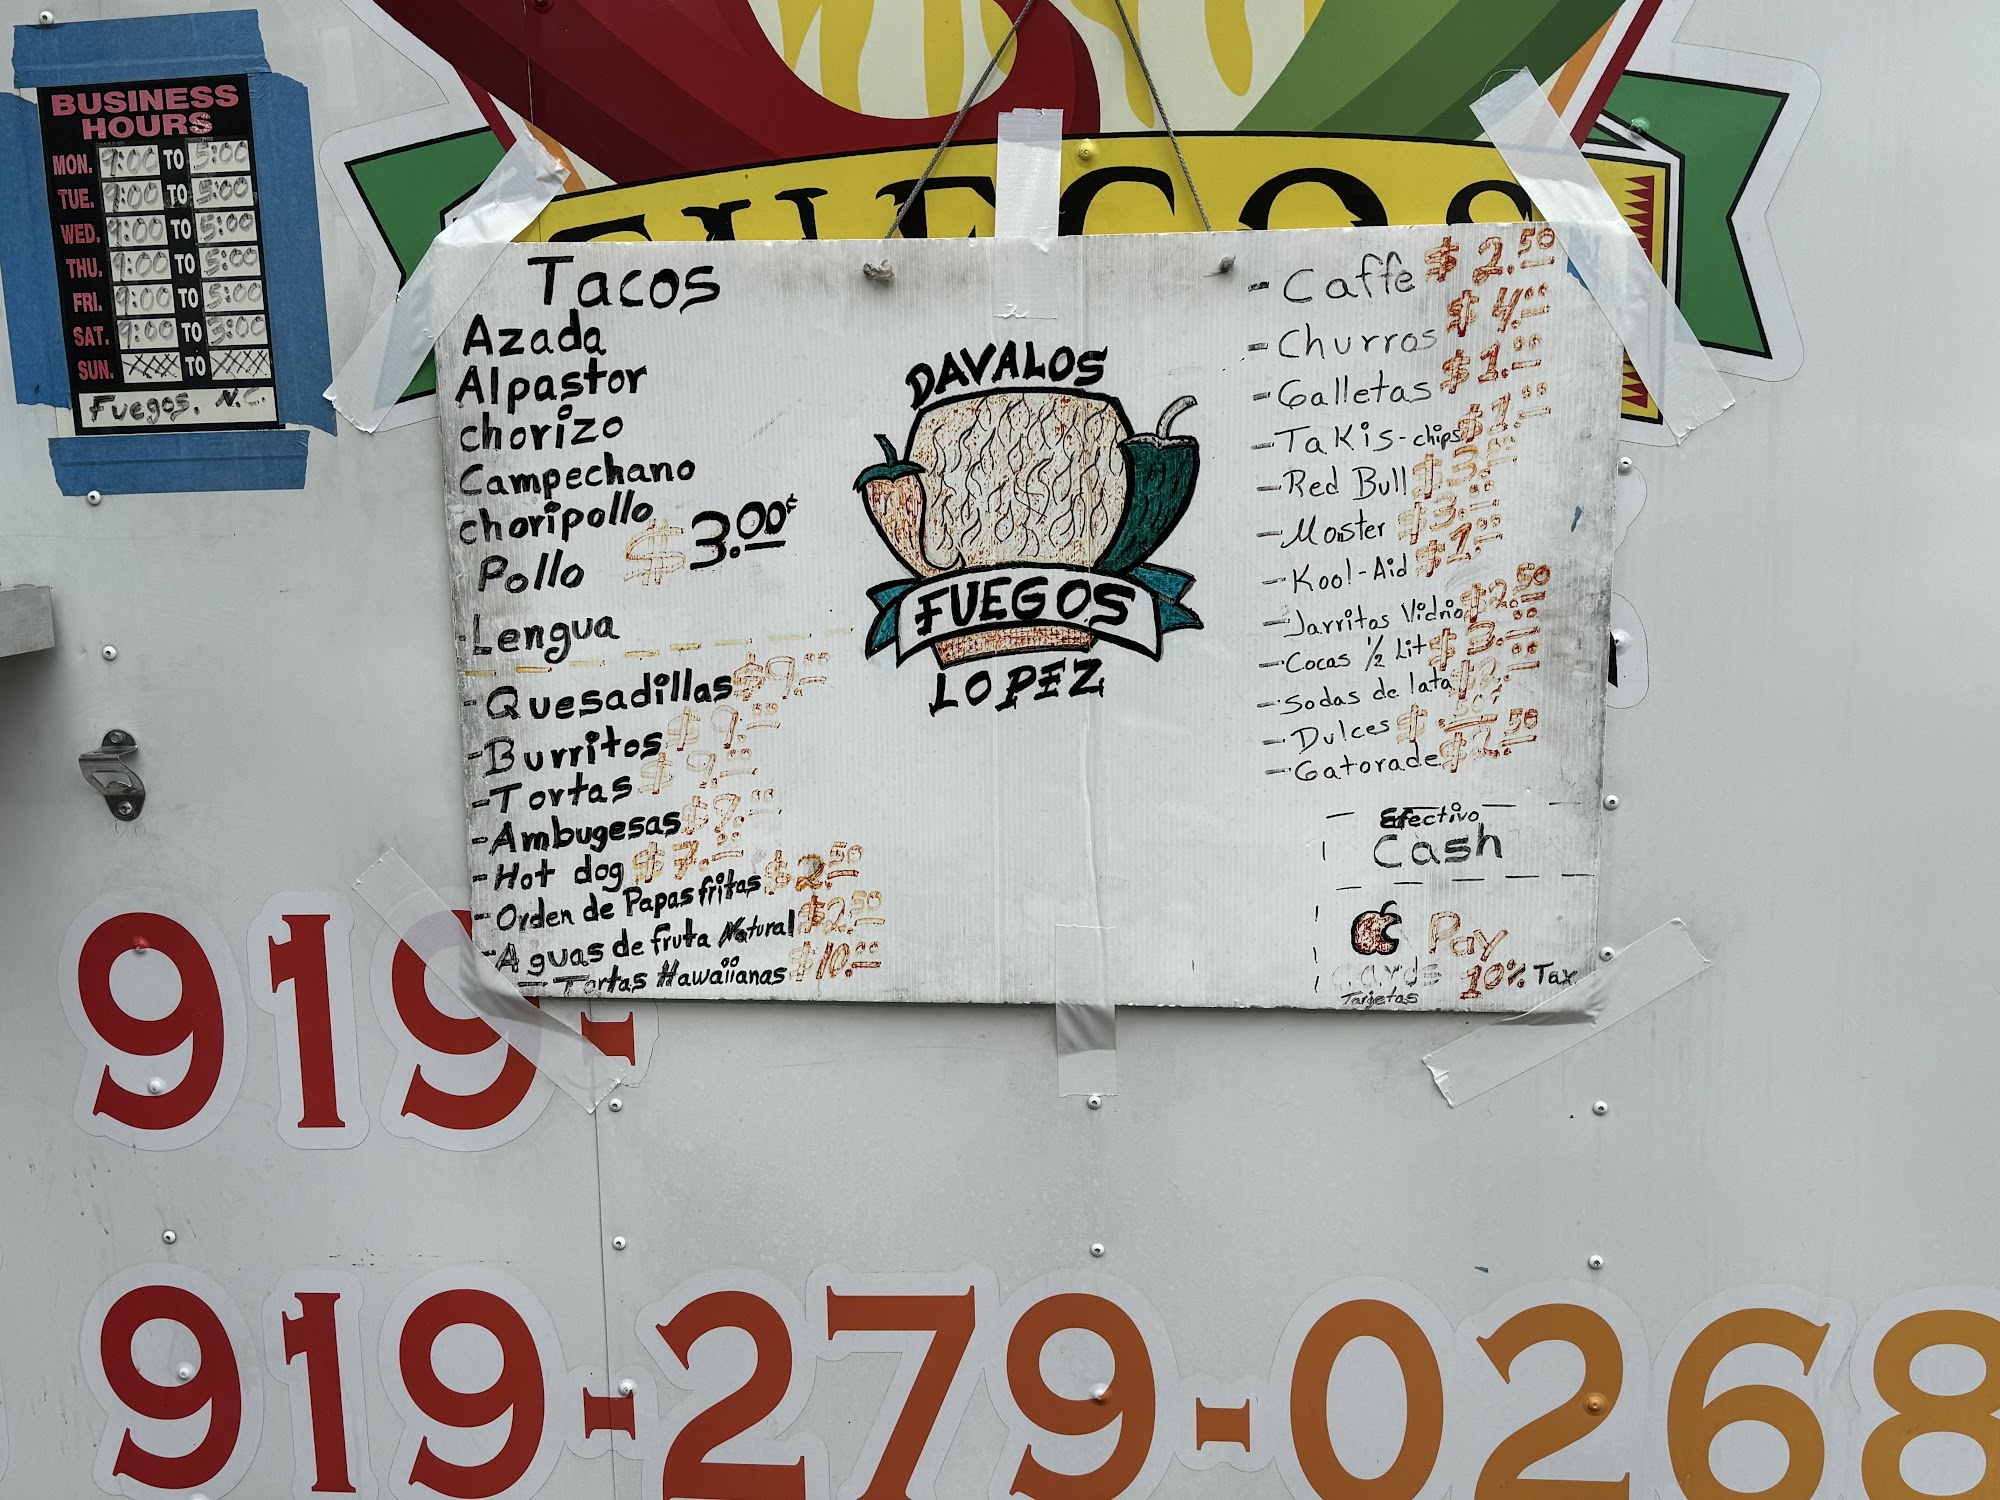 BUSINESS
HOURS
MON. 9:00 TO 5:00
TUE. 9:00 TO 5:00
WED. 9:00 TO 5:00
THU. 9:00 TO 5:00
FRI. 9:00 TO 5:00
SAT. 9:00 TO 3:00
SUN. XXXX TO XXXX
Fuegos. N.C.
FUEGOS
Tacos
Azada
Alpastor
chorizo
Campechano
choripollo
Pollo $3.00¢
Lengua
- Quesadillas $9.00
- Burritos $9.00
- Tortas $9.00
- Ambugesas $9.00
- Hot dog $7.00
- Orden de Papas fritas $2.50
- Aguas de fruta Natural $2.50
- Tortas Hawaiianas $10.00
DAVALOS
FUEGOS
LOPEZ
- Caffe $2.50
- Churros $4.00
- Galletas $1.00
- Takis-chips $1.00
- Red Bull $3.00
- Monster $3.00
- Kool-Aid $1.00
- Jarritos Vidrio $2.50
- Cocas 1/2 Lit $3.00
- Sodas de lata
- Dulces $.50
- Gatorade $2.50
Efectivo
Cash
Pay
Cards 10% Tax
Tarjetas
919-
919-279-0268